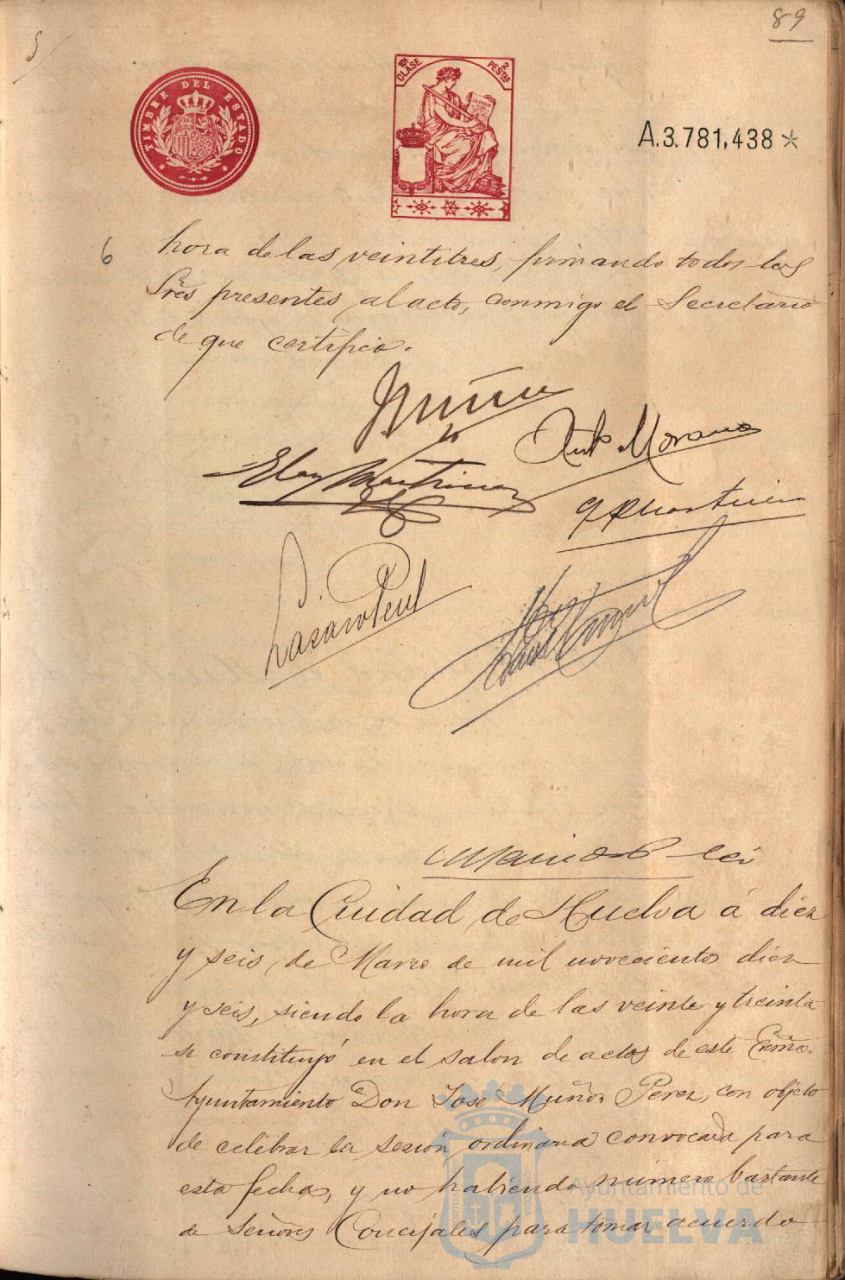 89
TIMBRE DEL ESTADO
10ª CLASE 2 PESTAS
A.3.781,438*
6
hora de las veintitres, firmando todos los
Sres presentes al acto, conmigo el Secretario
de que certifico.
Muñoz
Antº Moreno
Eloy Martinez
Lazaro Perul
En la Ciudad de Huelva á diez
y seis de Marzo de mil novecientos diez
y seis, siendo la hora de las veinte y treinta
se constituyó en el salon de actos de este Excmo.
Ayuntamiento Don José Muñoz Perez, con objeto
de celebrar la sesion ordinaria convocada para
esta fecha, y no habiendo numero bastante
de Señores Concejales para tomar acuerdo
Ayuntamiento de
HUELVA